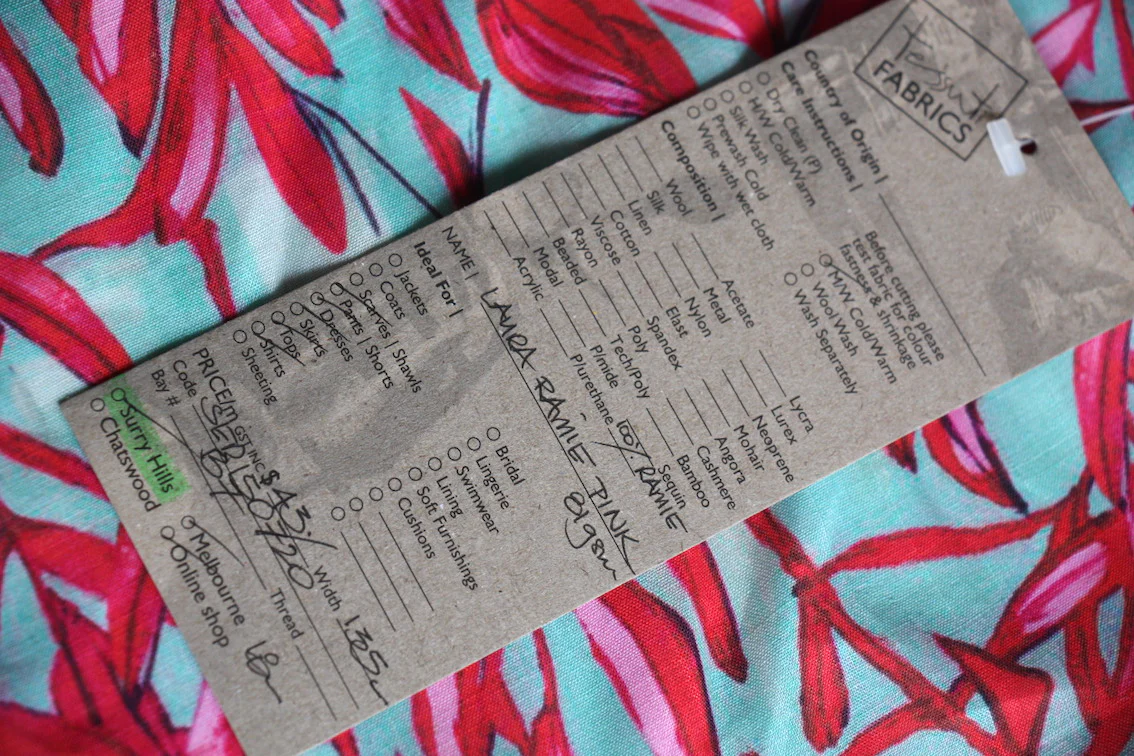 Tessuti
FABRICS
Country of Origin |
Care Instructions |
Dry Clean (P)
H/W Cold/Warm
Silk Wash
Prewash Cold
Wipe with wet cloth
Before cutting please
test fabric for colour
fastness & shrinkage
M/W Cold/Warm
Wool Wash
Wash Separately
Composition |
Wool Acetate Lycra
Silk Metal Lurex
Linen Nylon Neoprene
Cotton Elast Mohair
Viscose Spandex Angora
Rayon Poly Cashmere
Beaded Tech/Poly Bamboo
Modal P/mide Sequin
Acrylic P/urethane 100% RAMIE
NAME | LAURA RAMIE - PINK
Ideal For |
Jackets Bridal
Coats Lingerie
Scarves | Shawls Swimwear
Pants | Shorts Lining
Dresses Soft Furnishings
Skirts Cushions
Tops
Shirts
Sheeting
PRICE/M GST INC $ Width
Code
Bay # Thread
Surry Hills Melbourne
Chatswood Online shop